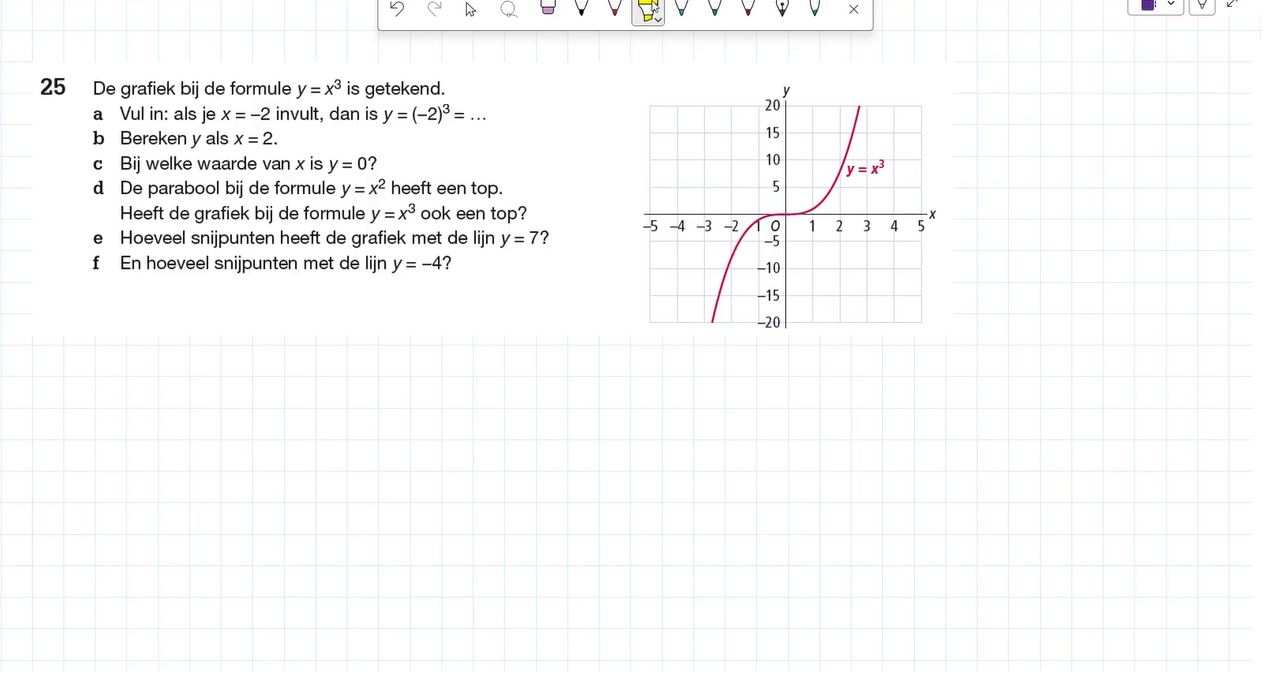 25 De grafiek bij de formule y = x³ is getekend.
a Vul in: als je x = –2 invult, dan is y = (–2)³ = …
b Bereken y als x = 2.
c Bij welke waarde van x is y = 0?
d De parabool bij de formule y = x² heeft een top.
Heeft de grafiek bij de formule y = x³ ook een top?
e Hoeveel snijpunten heeft de grafiek met de lijn y = 7?
f En hoeveel snijpunten met de lijn y = –4?
y
20
15
10
y = x³
5
x
–5 –4 –3 –2 1 O 1 2 3 4 5
–5
–10
–15
–20